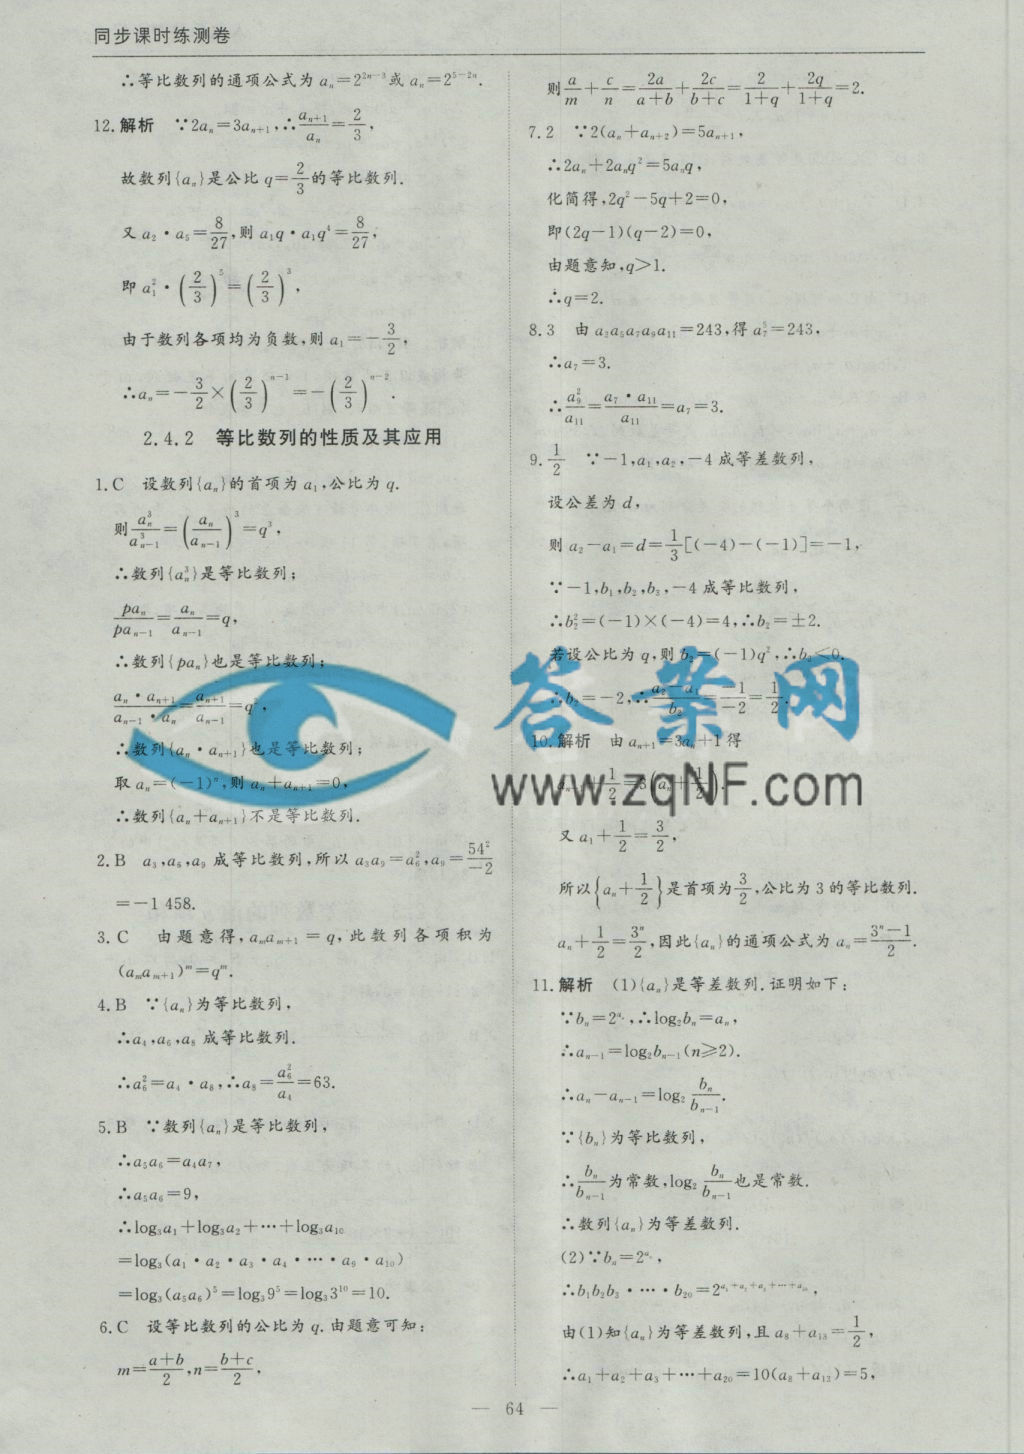 同步课时练测卷
∴等比数列的通项公式为 aₙ=2²ⁿ⁻³或 aₙ=2⁵⁻²ⁿ.
12.解析 ∵2aₙ=3aₙ₊₁,∴aₙ₊₁/aₙ=2/3,
故数列{aₙ}是公比 q=2/3的等比数列.
又 a₂·a₅=8/27,则 a₁q·a₁q⁴=8/27,
即 a₁²·(2/3)⁵=(2/3)³,
由于数列各项均为负数,则 a₁=-3/2,
∴aₙ=-3/2×(2/3)ⁿ⁻¹=-(2/3)ⁿ⁻².
2.4.2 等比数列的性质及其应用
1.C 设数列{aₙ}的首项为 a₁,公比为 q.
则aₙ³/aₙ₋₁³=(aₙ/aₙ₋₁)³=q³,
∴数列{aₙ³}是等比数列;
paₙ/paₙ₋₁=aₙ/aₙ₋₁=q,
∴数列{paₙ}也是等比数列;
aₙ·aₙ₊₁/aₙ₋₁·aₙ=aₙ₊₁/aₙ₋₁=q²,
∴数列{aₙ·aₙ₊₁}也是等比数列;
取 aₙ=(-1)ⁿ,则 aₙ+aₙ₊₁=0,
∴数列{aₙ+aₙ₊₁}不是等比数列.
2.B a₃,a₆,a₉ 成等比数列,所以 a₃a₉=a₆²,a₉=54²/-2
=-1 458.
3.C 由题意得,aₘaₘ₊₁=q,此数列各项积为
(aₘaₘ₊₁)ᵐ=qᵐ.
4.B ∵{aₙ}为等比数列,
∴a₄,a₆,a₈ 成等比数列.
∴a₆²=a₄·a₈,∴a₈=a₆²/a₄=63.
5.B ∵数列{aₙ}是等比数列,
∴a₅a₆=a₄a₇,
∴a₅a₆=9,
∴log₃a₁+log₃a₂+…+log₃a₁₀
=log₃(a₁·a₂·a₃·a₄·…·a₉·a₁₀)
=log₃(a₅a₆)⁵=log₃9⁵=log₃3¹⁰=10.
6.C 设等比数列的公比为 q.由题意可知:
m=a+b/2,n=b+c/2,
则a/m+c/n=2a/a+b+2c/b+c=2/1+q+2q/1+q=2.
7.2 ∵2(aₙ+aₙ₊₂)=5aₙ₊₁,
∴2aₙ+2aₙq²=5aₙq,
化简得,2q²-5q+2=0,
即(2q-1)(q-2)=0,
由题意知,q>1.
∴q=2.
8.3 由 a₃a₅a₇a₉a₁₁=243,得 a₇⁵=243,
∴a₇=3.
∴a₉²/a₁₁=a₇·a₁₁/a₁₁=a₇=3.
9.1/2 ∵-1,a₁,a₂,-4 成等差数列,
设公差为 d,
则 a₂-a₁=d=1/3[(-4)-(-1)]=-1,
∵-1,b₁,b₂,b₃,-4 成等比数列,
∴b₂²=(-1)×(-4)=4,∴b₂=±2.
若设公比为 q,则 b₂=(-1)q²,∴b₂<0.
∴b₂=-2,∴a₂-a₁/b₂=-1/-2=1/2.
10.解析 由 aₙ₊₁=3aₙ+1得
aₙ₊₁+1/2=3(aₙ+1/2).
又 a₁+1/2=3/2,
所以{aₙ+1/2}是首项为3/2,公比为 3 的等比数列.
aₙ+1/2=3ⁿ/2,因此{aₙ}的通项公式为 aₙ=3ⁿ-1/2.
11.解析 (1){aₙ}是等差数列.证明如下:
∵bₙ=2^aₙ,∴log₂bₙ=aₙ,
∴aₙ₋₁=log₂bₙ₋₁(n≥2).
∴aₙ-aₙ₋₁=log₂ bₙ/bₙ₋₁.
∵{bₙ}为等比数列,
∴bₙ/bₙ₋₁为常数,log₂ bₙ/bₙ₋₁也是常数.
∴数列{aₙ}为等差数列.
(2)∵bₙ=2^aₙ,
∴b₁b₂b₃·…·b₂₀=2^a₁+a₂+a₃+…+a₂₀,
由(1)知{aₙ}为等差数列,且 a₈+a₁₃=1/2,
∴a₁+a₂+a₃+…+a₂₀=10(a₈+a₁₃)=5,
答案网
www.zqNF.com
— 64 —